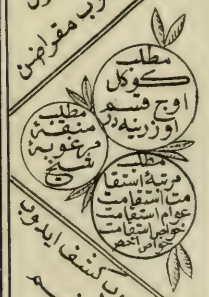 مطلب
كوكل
اوچ قسم
اوزرينه در
مطلب
منقبۀ
مرغوبۀ
شيخ
مطلب
مرتبۀ استقا
مت استقامت
عوام استقامت
خواص استقامت
خواص اخص
كشف ايدوب